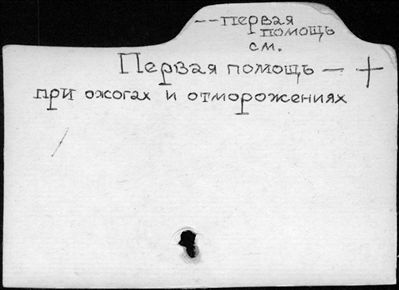 --первая
помощь
см.
Первая помощь — +
при ожогах и отморожениях